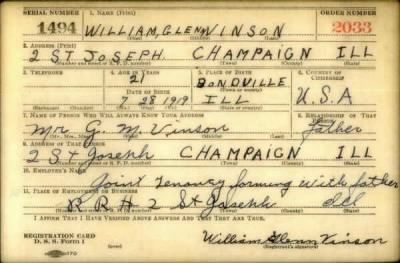 SERIAL NUMBER 1. NAME (Print) ORDER NUMBER
1494 WILLIAM, GLENN VINSON 2033
(First) (Middle) (Last)
2. ADDRESS (Print)
2 ST JOSEPH CHAMPAIGN ILL
(Number and street or R. F. D. number) (Town) (County) (State)
3. TELEPHONE 4. AGE IN YEARS 5. PLACE OF BIRTH 6. COUNTRY OF CITIZENSHIP
21 BONDVILLE
DATE OF BIRTH (Town or county)
7 28 1919 ILL U.S.A
(Exchange) (Number) (Mo.) (Day) (Yr.) (State or country)
7. NAME OF PERSON WHO WILL ALWAYS KNOW YOUR ADDRESS 8. RELATIONSHIP OF THAT PERSON
Mr. G. M. Vinson father
(Mr., Mrs., Miss) (First) (Middle) (Last)
9. ADDRESS OF THAT PERSON
2 St Joseph CHAMPAIGN ILL
(Number and street or R. F. D. number) (Town) (County) (State)
10. EMPLOYER'S NAME
Joint Tenancy farming with father
11. PLACE OF EMPLOYMENT OR BUSINESS
R R # 2 St Joseph Ill
(Number and street or R. F. D. number) (Town) (County) (State)
I AFFIRM THAT I HAVE VERIFIED ABOVE ANSWERS AND THAT THEY ARE TRUE.
REGISTRATION CARD
D. S. S. Form 1 William Glenn Vinson
(Registrant's signature)